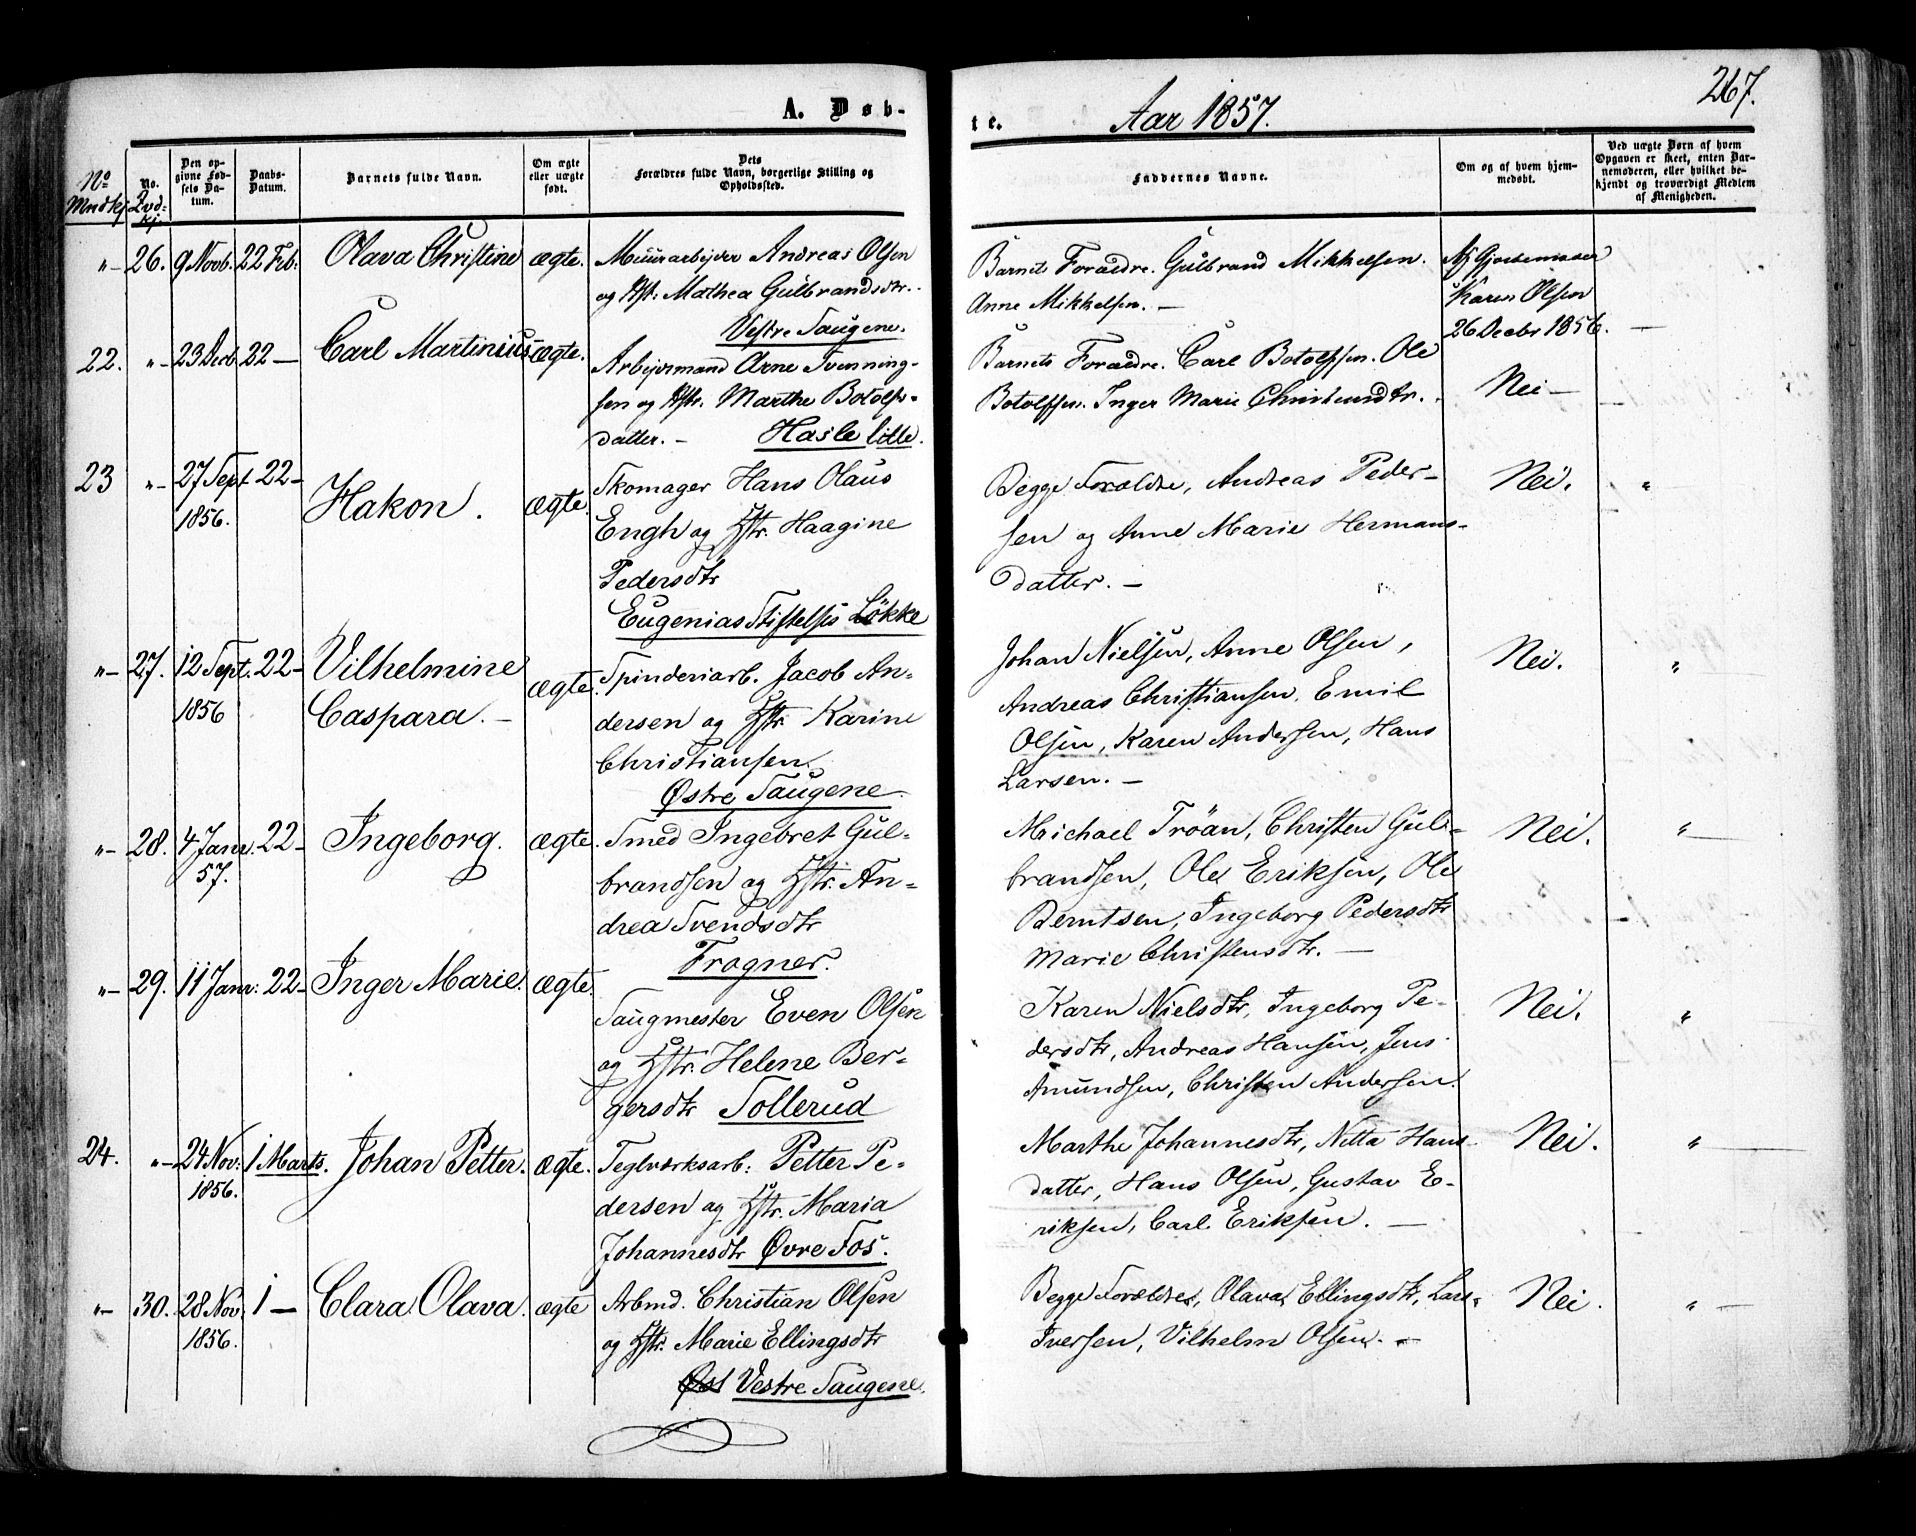 A. Døb-
te.
Aar 1857.
267.
No Mndkj.
No. Qvd-kj.
Den opgivne Fødsels Datum.
Daabs-Datum.
Barnets fulde Navn.
Om ægte eller uægte født.
Dets Forældres fulde Navn, borgerlige Stilling og Opholdssted.
Faddernes Navne.
Om og af hvem hjemmedøbt.
Ved uægte Børn af hvem Opgaven er skeet, enten Barnemoderen, eller hvilket bekjendt og troværdigt Medlem af Menigheden.
"– 26. 9 Novb. 22 Feb: Olava Christine ægte. Muurarbejder Andreas Olsen
og Hst: Mathea Gulbrandsdtr.
Vestre Saugene.
Barnets Forældre. Gulbrand Mikkelsen.
Anne Mikkelsen. –
Af Gjordemoder
Karen Olsen
26 Decbr 1856. –
22. "– 23 Decb. 22 – Carl Martinius ægte. Arbejdsmand Arne Tvenning-
sen og Hstr. Marthe Botolfs-
datter. – Hasle lille.
Barnets Forældre. Carl Botolfsen. Ole
Botolfsen. Inger Marie Christundtr.
Nei –
23 "– 27 Sept 22 –
1856.
Hakon. ægte. Skomager Hans Olaus
Engh og Hstr. Haagine
Pedersdtr
Eugenias Stiftelses Løkke
Begge Forældre, Andreas Peder-
sen og Anne Marie Hermans-
datter. –
Nei. "
"– 27. 12 Sept. 22 –
1856
Vilhelmine
Caspara. –
ægte. Spinderiarb. Jacob An-
dersen og Hstr. Karine
Christiansen.
Østre Saugene.
Johan Nielsen, Anne Olsen,
Andreas Christiansen, Emil
Olsen, Karen Andersen, Hans
Larsen. –
Nei. "
"– 28. 4 Janr. 22 –
57.
Ingeborg. ægte. Smed Ingebret Gul-
brandsen og Hstr. An-
drea Svendsdtr
Frogner.
Michael Trøan, Christen Gul-
brandsen, Ole Eriksen, Ole
Berntsen, Ingeborg Pedersdtr
Marie Christensdtr. –
Nei. " –
"– 29. 11 Janr: 22 – Inger Marie. ægte.
Saugmester Even Olsen
og Hstr. Helene Ber-
gersdtr Tollerud
Karen Nielsdtr, Ingeborg Pe-
dersdtr, Andreas Hansen, Jens
Amundsen, Christen Andersen.
Nei. "
24. "– 24 Nov: 1 Marts. Johan Petter. ægte.
1856.
Teglværksarb: Petter Pe-
dersen og Hstr. Maria
Johannesdtr Øvre Fos.
Marthe Johannesdtr, Nitta Hans-
datter, Hans Olsen, Gustav E-
riksen, Carl Eriksen. –
Nei. " –
"– 30. 28 Nov: 1 – Clara Olava. ægte
1856.
Arbmd. Christian Olsen
og Hstr. Marie Ellingsdtr
Øst Vestre Saugene.
Begge Forældre, Olava Ellingsdtr, Lars
Iversen, Vilhelm Olsen. –
Nei. " –